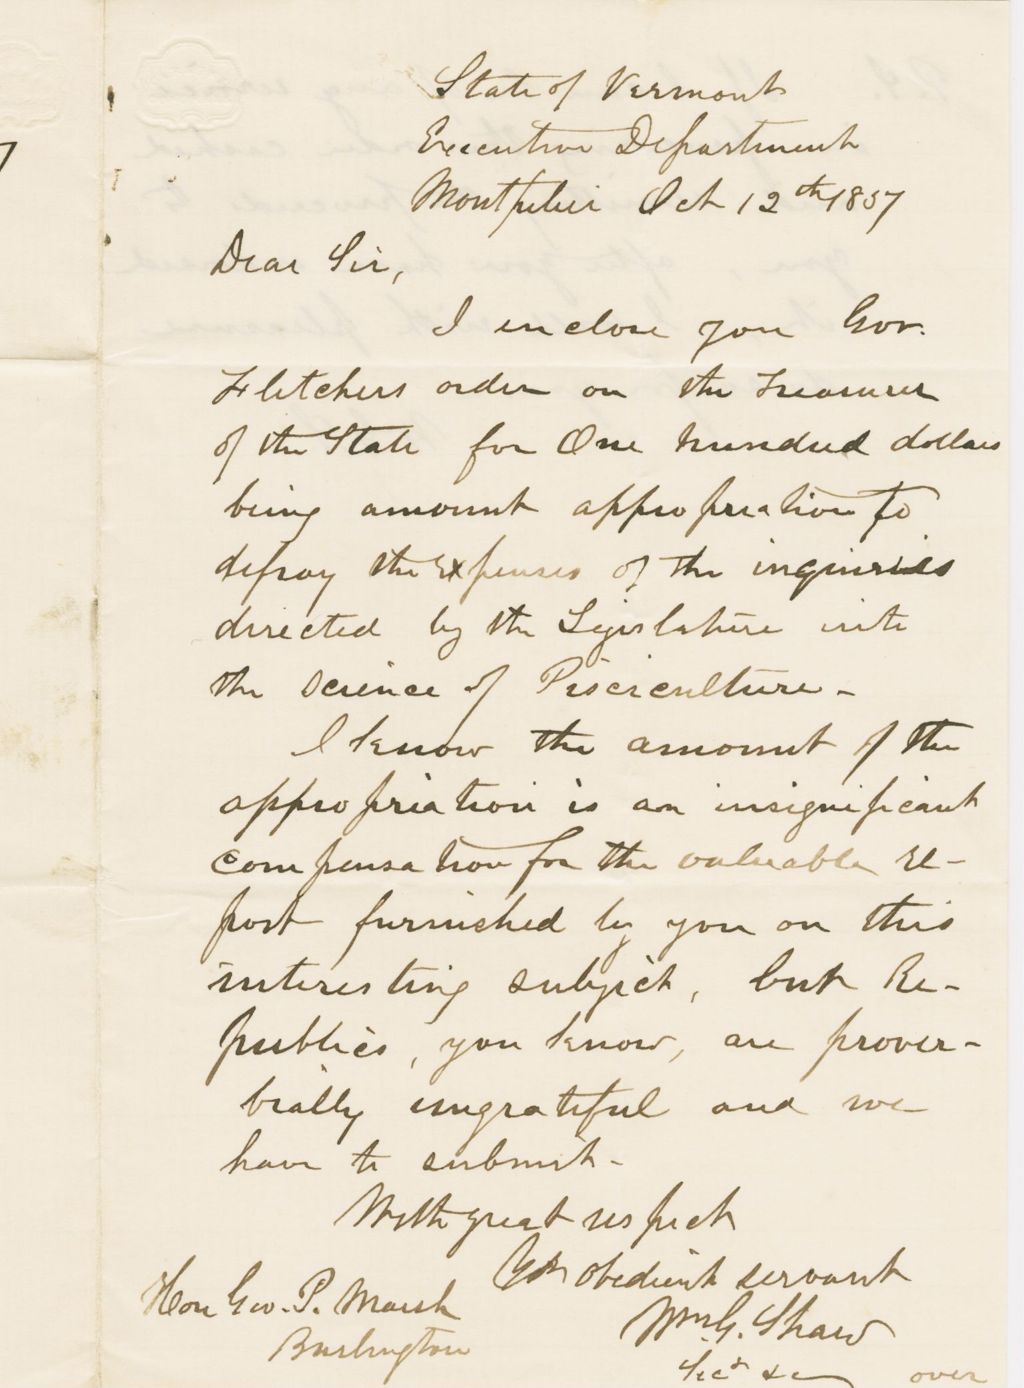 State of Vermont
Executive Department
Montpelier Oct 12th 1857
Dear Sir,
I enclose you Gov.
Fletchers order on the Treasurer
of the State for One hundred dollars
being amount appropriation to
defray the Expenses of the inquiries
directed by the Legislature into
the science of Pisciculture -
I know the amount of the
appropriation is an insignificant
compensation for the valuable re-
port furnished by you on this
interesting subject, but Re-
publics, you know, are prover-
bially ungrateful and we
have to submit -
With great respect
Yr obedient servant
Wm. G. Shaw
Secy &c
Hon Geo. P. Marsh
Burlington
over